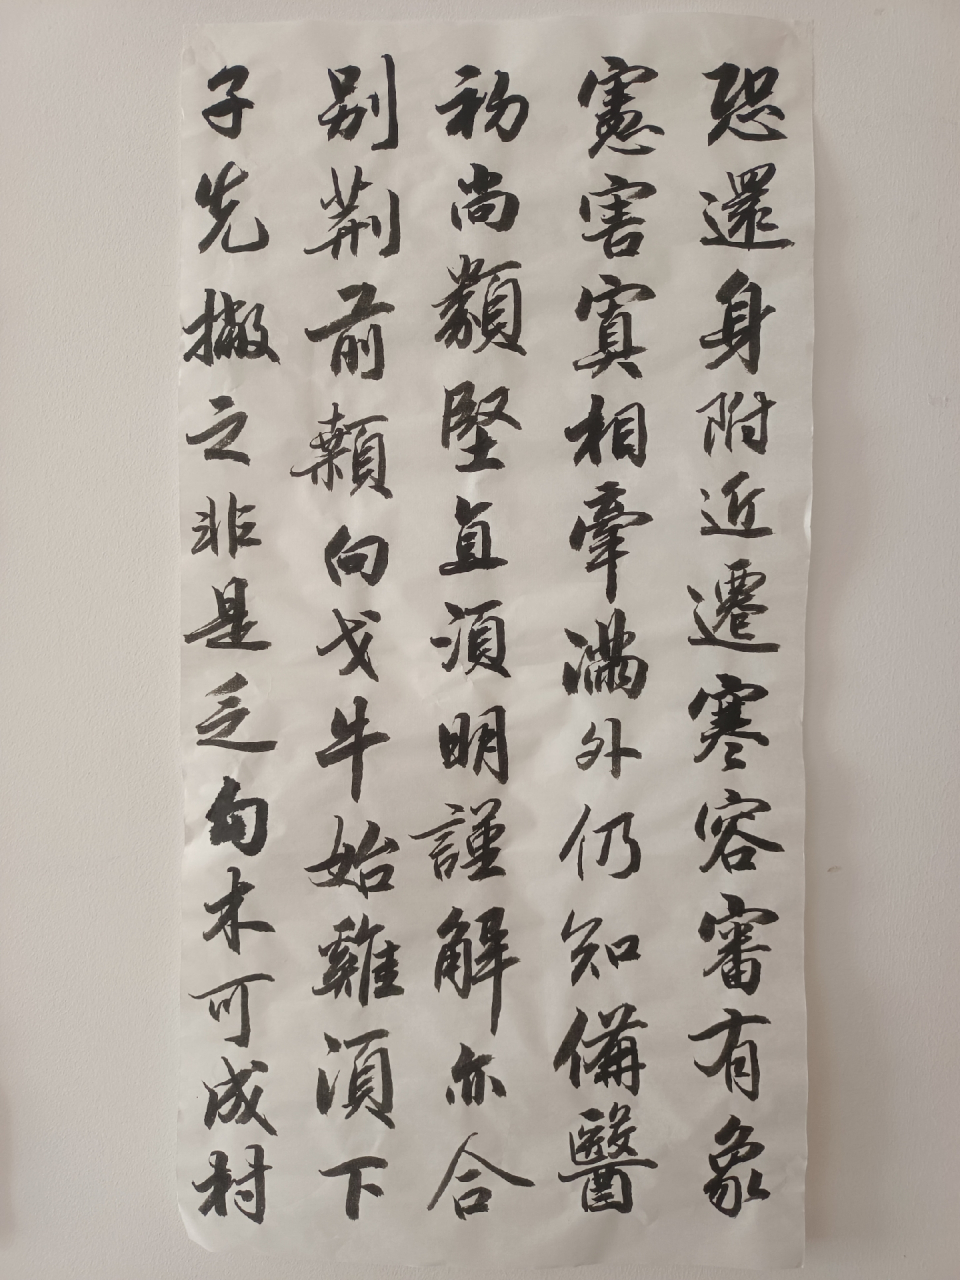 恐還身附近遷寒容審有象
憲害寘相牽滿外仍知備醫
初尚類堅直須明謹解亦合
别荆前類向戈牛始雞須下
子先撇之非是乏勾木可成村